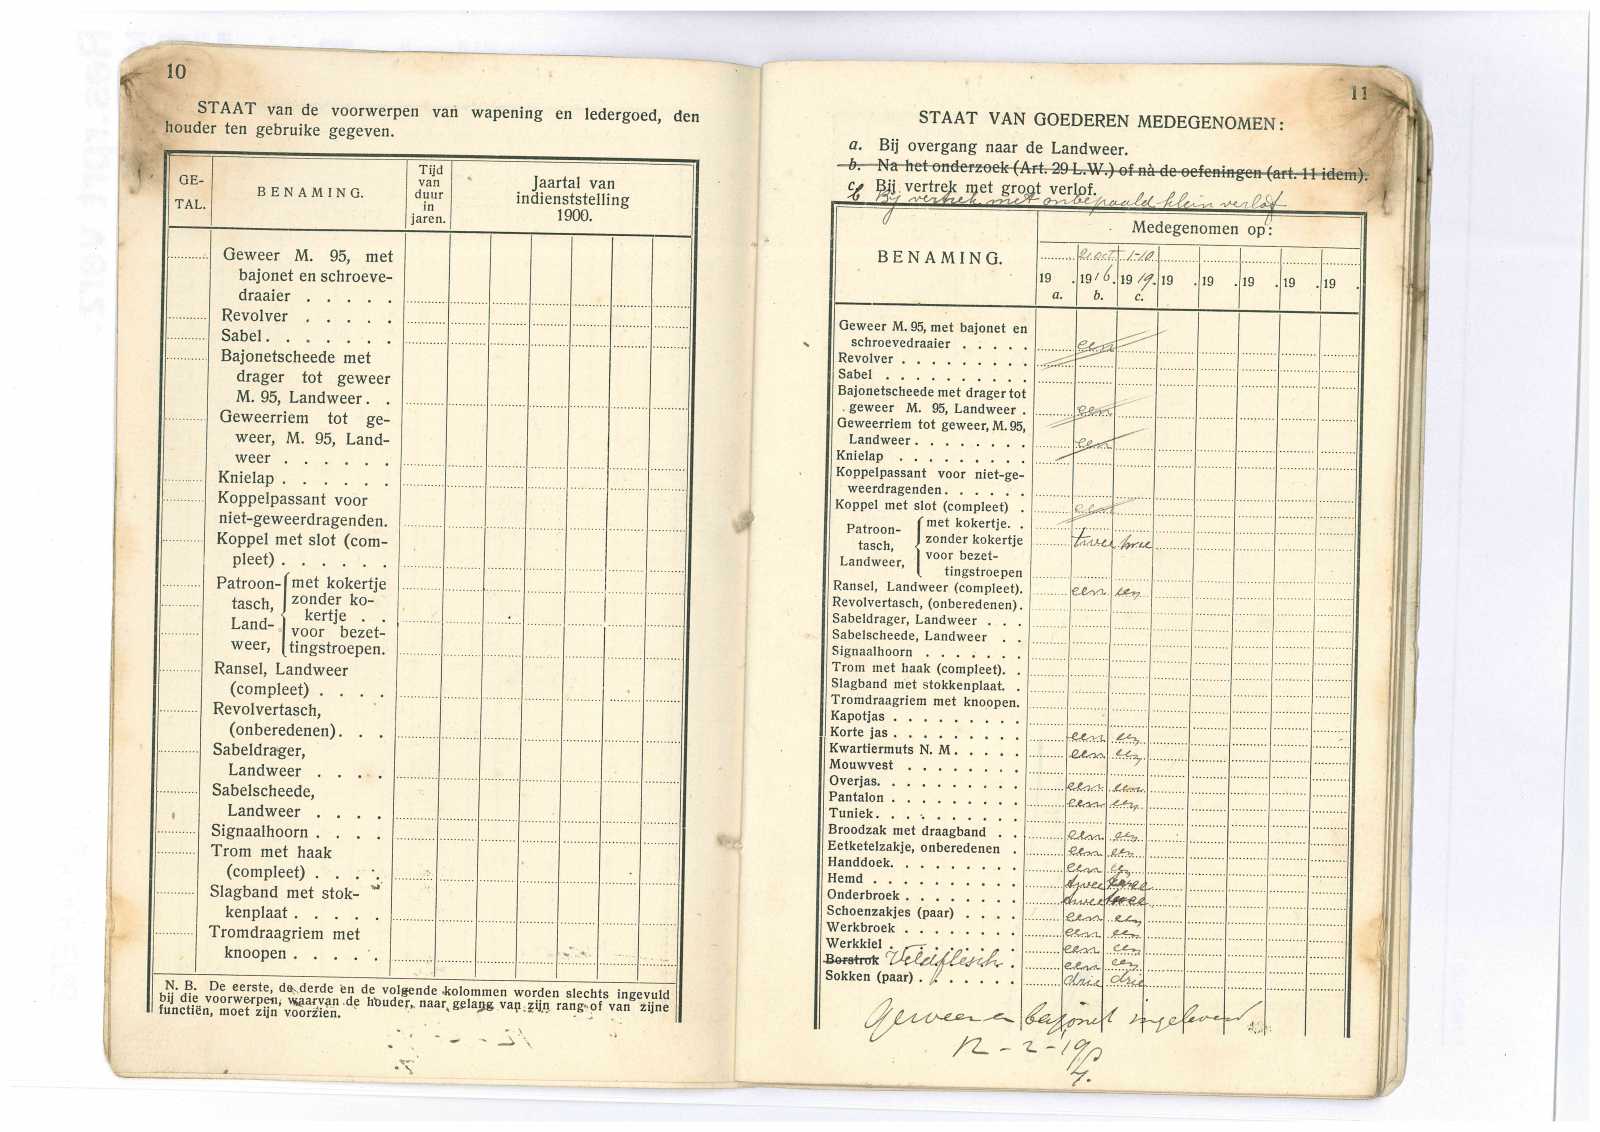 10
STAAT van de voorwerpen van wapening en ledergoed, den
houder ten gebruike gegeven.
GE-
TAL.
BENAMING.
Tijd
van
duur
in
jaren.
Jaartal van
indienststelling
1900.
Geweer M. 95, met
bajonet en schroeve-
draaier . . . . .
Revolver . . . . .
Sabel . . . . . . .
Bajonetscheede met
drager tot geweer
M. 95, Landweer . .
Geweerriem tot ge-
weer, M. 95, Land-
weer . . . . . .
Knielap . . . . . .
Koppelpassant voor
niet-geweerdragenden.
Koppel met slot (com-
pleet) . . . . . .
Patroon-
tasch,
Land-
weer,
met kokertje
zonder ko-
kertje . .
voor bezet-
tingstroepen.
Ransel, Landweer
(compleet) . . . .
Revolvertasch,
(onberedenen) . . .
Sabeldrager,
Landweer . . . .
Sabelscheede,
Landweer . . . .
Signaalhoorn . . . .
Trom met haak
(compleet) . . . .
Slagband met stok-
kenplaat . . . . .
Tromdraagriem met
knoopen . . . . .
N. B. De eerste, de derde en de volgende kolommen worden slechts ingevuld
bij die voorwerpen, waarvan de houder, naar gelang van zijn rang of van zijne
functiën, moet zijn voorzien.
11
STAAT VAN GOEDEREN MEDEGENOMEN:
a. Bij overgang naar de Landweer.
b. Na het onderzoek (Art. 29 L.W.) of nà de oefeningen (art. 11 idem).
c. Bij vertrek met groot verlof.
b Bij vertrek met onbepaald klein verlof
BENAMING.
Medegenomen op:
oct. 1-10
19 . 1916. 1919. 19 . 19 . 19 . 19 . 19 .
a. b. c.
Geweer M. 95, met bajonet en
schroevedraaier . . . . . een
Revolver . . . . . . . .
Sabel . . . . . . . . .
Bajonetscheede met drager tot
geweer M. 95, Landweer . een
Geweerriem tot geweer, M. 95,
Landweer . . . . . . . . een
Knielap . . . . . . . . .
Koppelpassant voor niet-ge-
weerdragenden . . . . . .
Koppel met slot (compleet) . een
Patroon-
tasch,
Landweer,
met kokertje . .
zonder kokertje twee twee
voor bezet-
tingstroepen
Ransel, Landweer (compleet). een een
Revolvertasch, (onberedenen).
Sabeldrager, Landweer . . .
Sabelscheede, Landweer . .
Signaalhoorn . . . . . . .
Trom met haak (compleet). .
Slagband met stokkenplaat. .
Tromdraagriem met knoopen.
Kapotjas . . . . . . . . .
Korte jas . . . . . . . . . een een
Kwartiermuts N. M . . . . . een een
Mouwvest . . . . . . . .
Overjas. . . . . . . . . . een een
Pantalon . . . . . . . . . een een
Tuniek. . . . . . . . . .
Broodzak met draagband . . een een
Eetketelzakje, onberedenen . een een
Handdoek. . . . . . . . . een een
Hemd . . . . . . . . . . twee twee
Onderbroek . . . . . . . . twee twee
Schoenzakjes (paar) . . . . een een
Werkbroek . . . . . . . . een een
Werkkiel . . . . . . . . . een een
Borstrok Veldflesch . een een
Sokken (paar) . . . . . . . drie drie
Geweer en bajonet ingeleverd
12-2-19